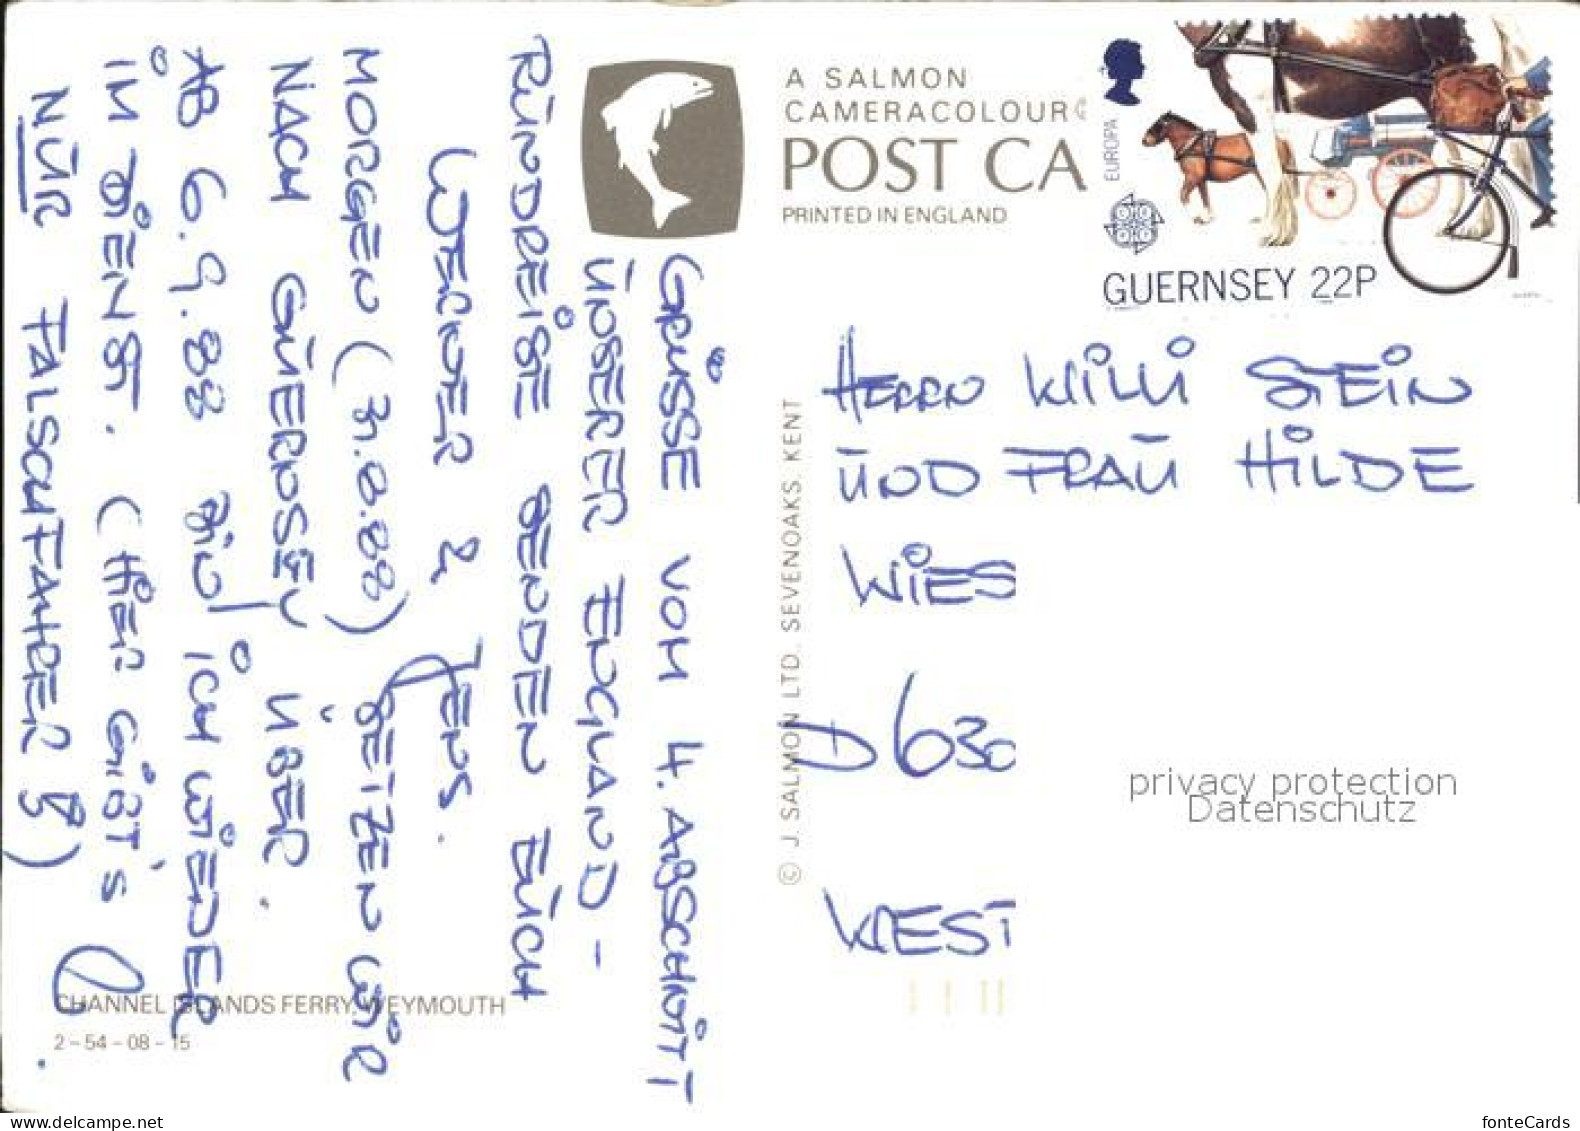 GRÜSSE VOM 4. ABSCHNITT
UNSERER ENGLAND-
RUNDREISE SENDEN EUCH
WERNER & JENS.
MORGEN (31.8.88) SETZEN WIR
NACH GUERNSEY ÜBER.
AB 6.9.88 BIN ICH WIEDER
IM DIENST. (HIER GIBT'S
NUR FALSCHFAHRER!)
A SALMON
CAMERACOLOUR
POST CA
PRINTED IN ENGLAND
EUROPA
GUERNSEY 22P
HERRN WILLI STEIN
UND FRAU HILDE
WIES
D 630
WEST
© J. SALMON LTD. SEVENOAKS. KENT
privacy protection
Datenschutz
CHANNEL ISLANDS FERRY, WEYMOUTH
2-54-08-15
www.delcampe.net
fonteCards